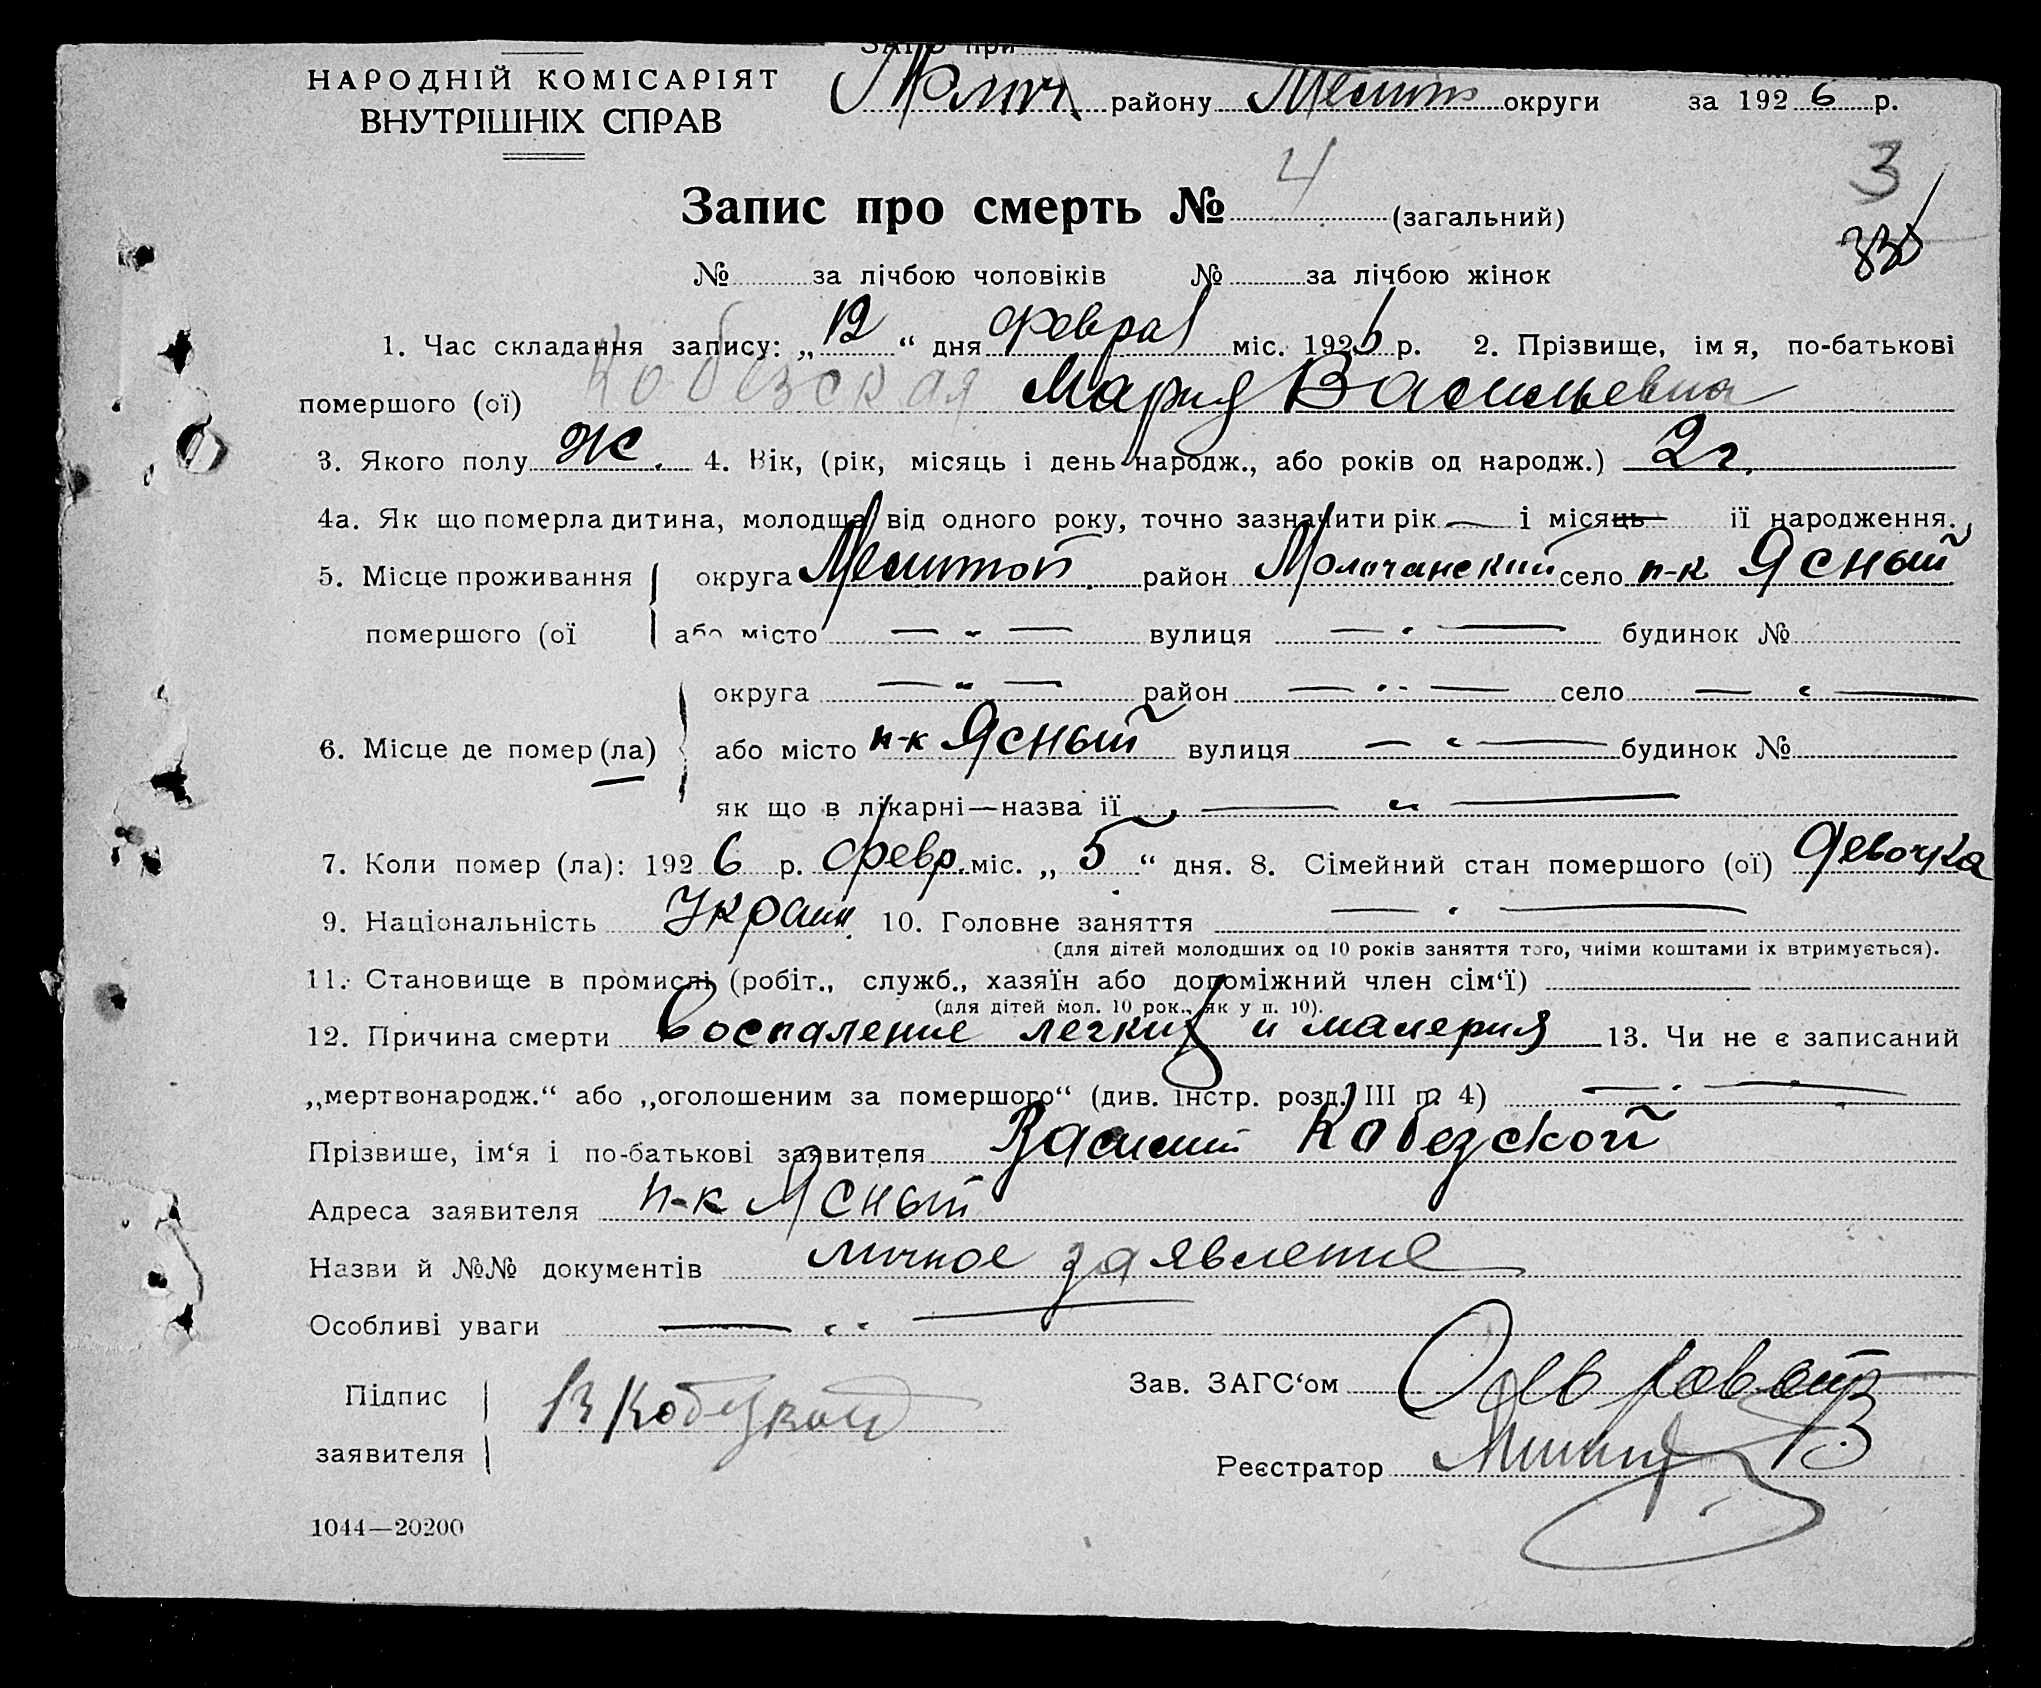 НАРОДНІЙ КОМІСАРІЯТ
ВНУТРІШНІХ СПРАВ
ЗАГС при
Молоч району Мелитоп округи за 1926 р.
3
Запис про смерть № 4 (загальний)
№ за лічбою чоловіків № за лічбою жінок
1. Час складання запису: „12“ дня феврал міс. 1926 р. 2. Прізвище, імя, по-батькові
помершого (ої) Кобезская Мария Васильевна
3. Якого полу Ж. 4. Вік, (рік, місяць і день народж., або років од народж.) 2 г.
4а. Як що померла дитина, молодша від одного року, точно зазначити рік — і місяць — ії народження.
5. Місце проживання округа Мелитоп. район Молочанский село п-к Ясный
помершого (ої або місто — „ — вулиця — „ — будинок №
округа — „ — район — „ — село — „ —
6. Місце де помер (ла) або місто п-к Ясный вулиця — „ — будинок №
як що в лікарні—назва ії — „ —
7. Коли помер (ла): 1926 р. февр. міс. „5“ дня. 8. Сімейний стан помершого (ої) девочка
9. Національність Украин. 10. Головне заняття — „ —
(для дітей молодших од 10 років заняття того, чиїми коштами їх втримується).
11. Становище в промислі (робіт., служб., хазяїн або допоміжний член сім‘ї)
(для дітей мол. 10 рок., як у п. 10).
12. Причина смерти Воспаление легких и малерия 13. Чи не є записаний
„мертвонародж.“ або „оголошеним за помершого“ (див. інстр. розд. III п 4) — „ —
Прізвише, ім‘я і по-батькові заявителя Василий Кобезской
Адреса заявителя п-к Ясный
Назви й №№ документів личное заявление
Особливі уваги — „ —
Підпис
заявителя
В Кобезкой
Зав. ЗАГС‘ом
Реєстратор
1044—20200